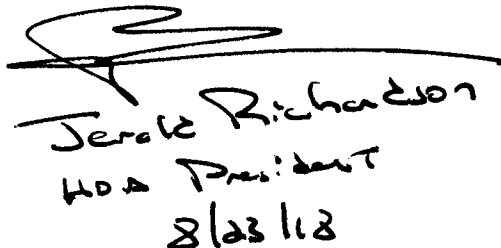 Jerald Richardson
HOA President
8/23/18